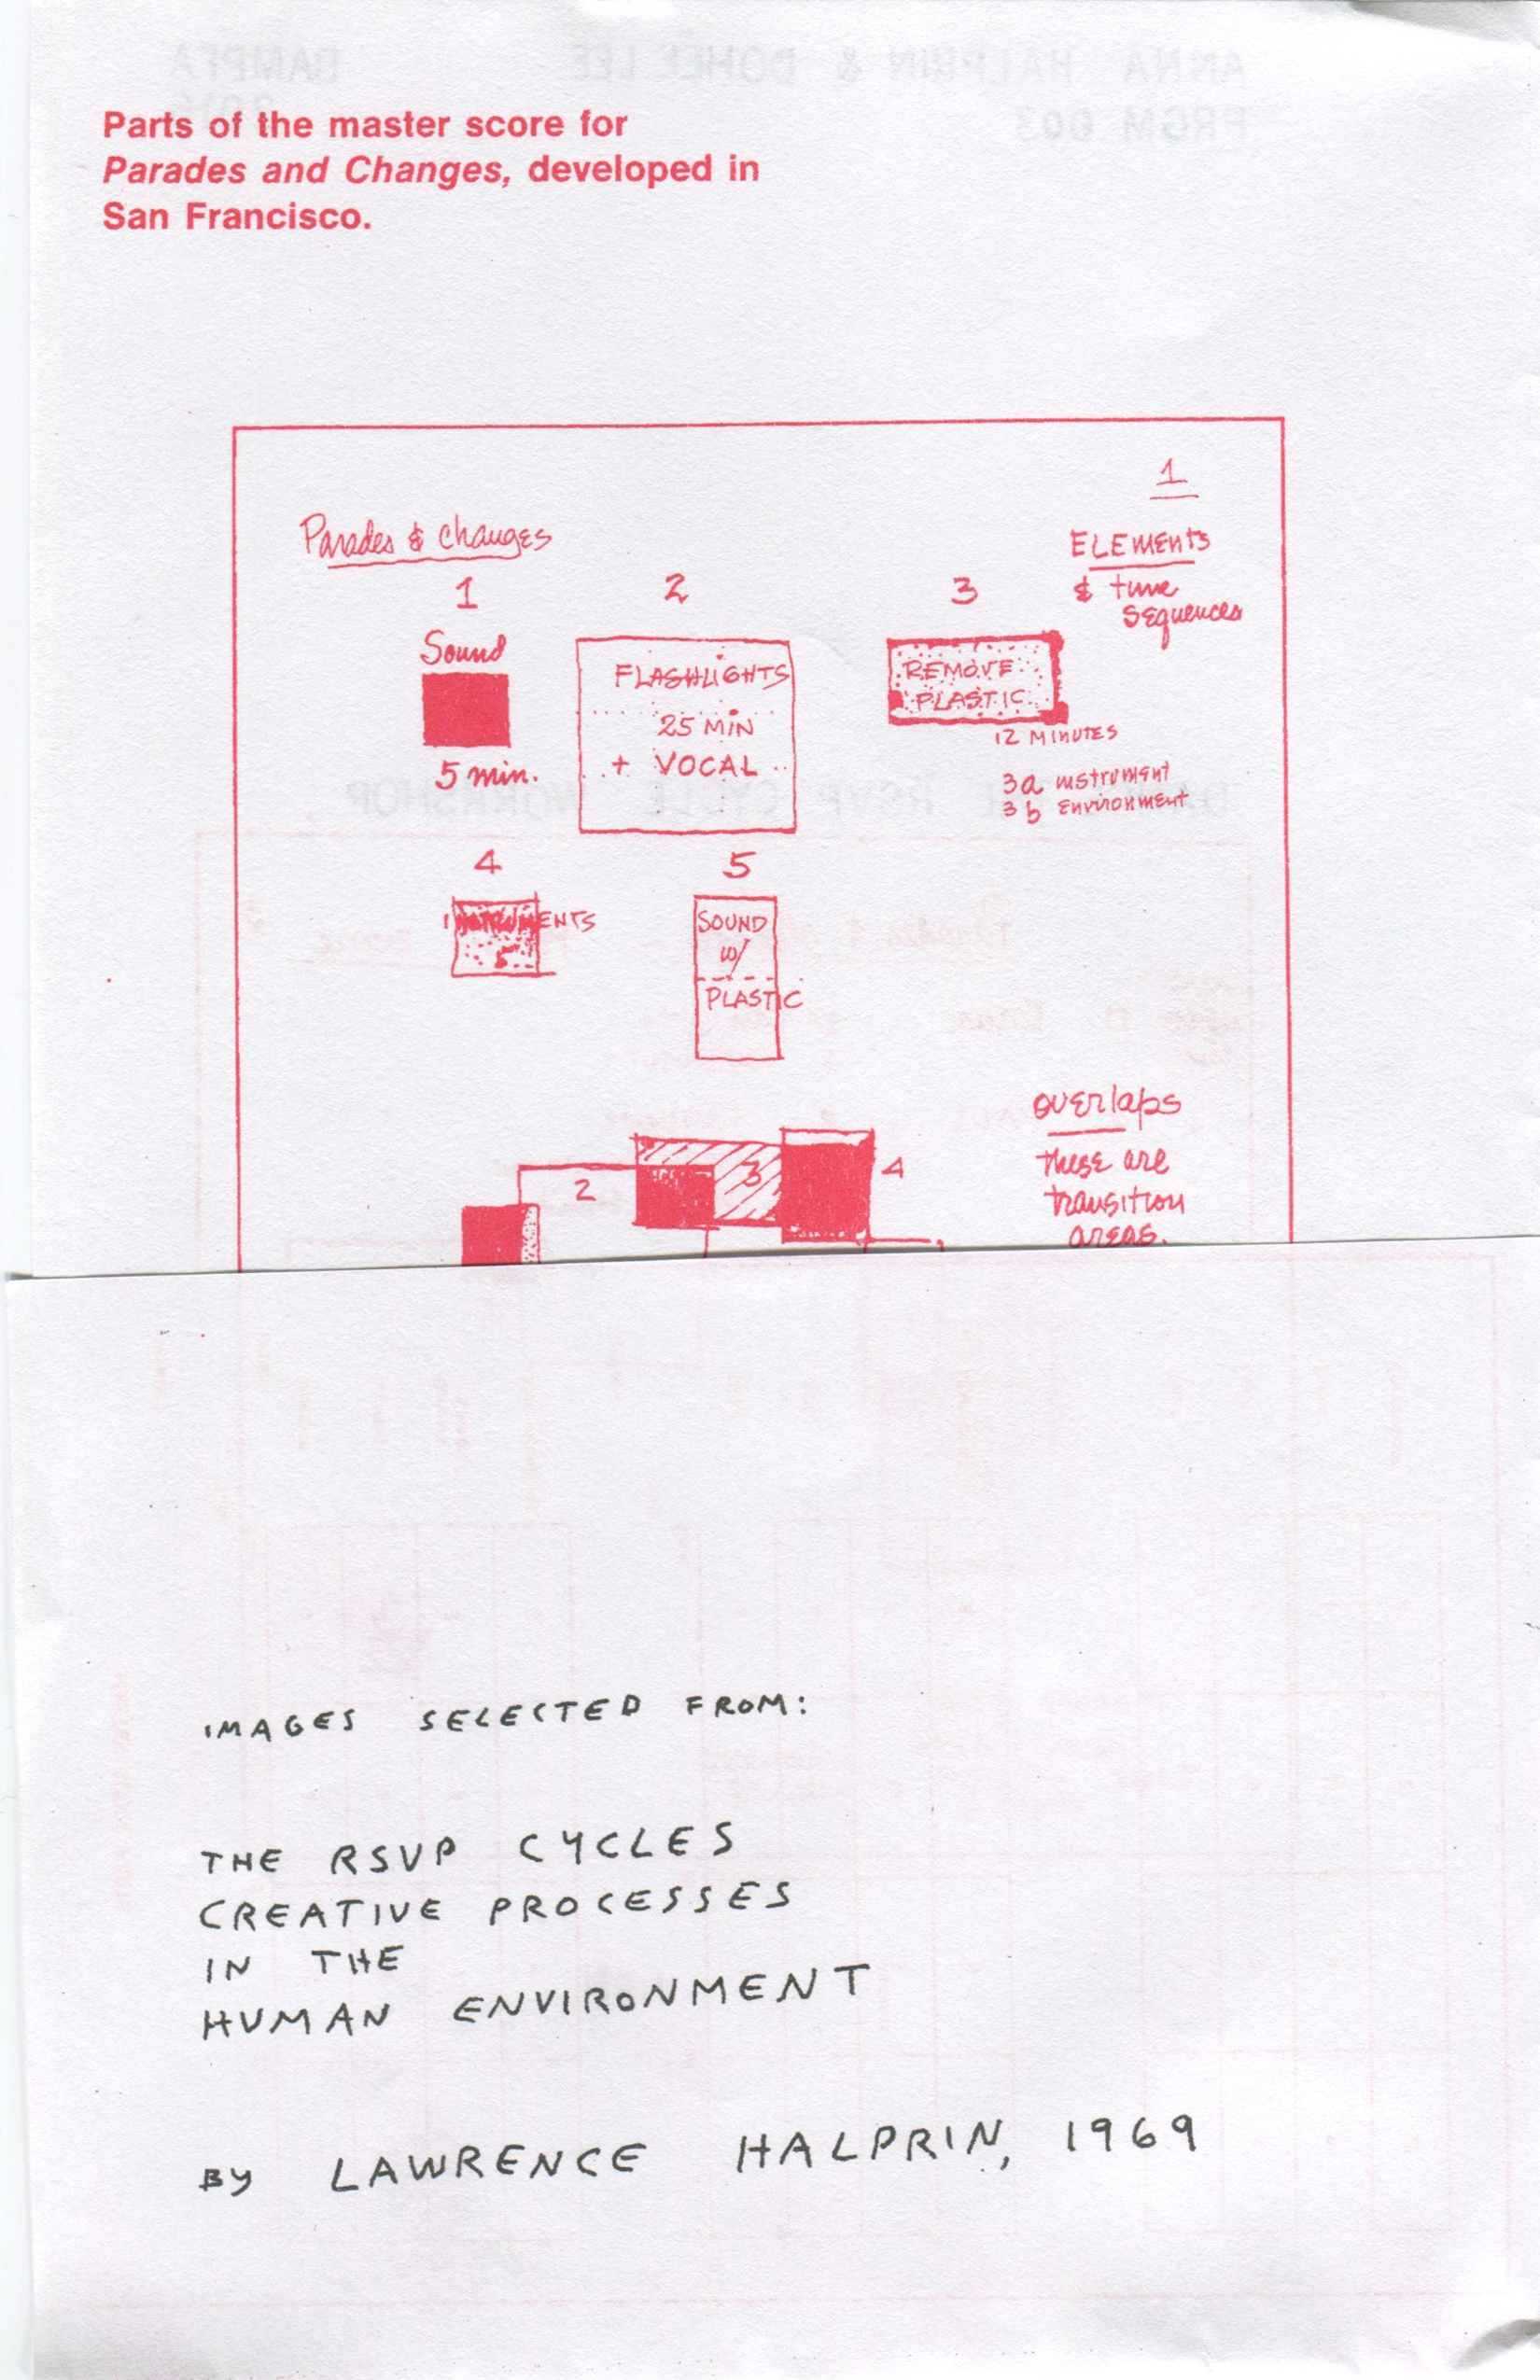 Parts of the master score for
Parades and Changes, developed in
San Francisco.
1
Parades & Changes
ELEMENTS
& time
Sequences
1
2
3
Sound
5 min.
FLASHLIGHTS
25 MIN
+ VOCAL
REMOVE
PLASTIC
12 MINUTES
3a instrument
3b Environment
4
5
INSTRUMENTS
SOUND
W/
PLASTIC
overlaps
these are
transition
areas.
2
3
4
IMAGES SELECTED FROM:
THE RSVP CYCLES
CREATIVE PROCESSES
IN THE
HUMAN ENVIRONMENT
BY LAWRENCE HALPRIN, 1969
ANNA HALPRIN & DOHEE LEE
BAMPFA
PRGM 003